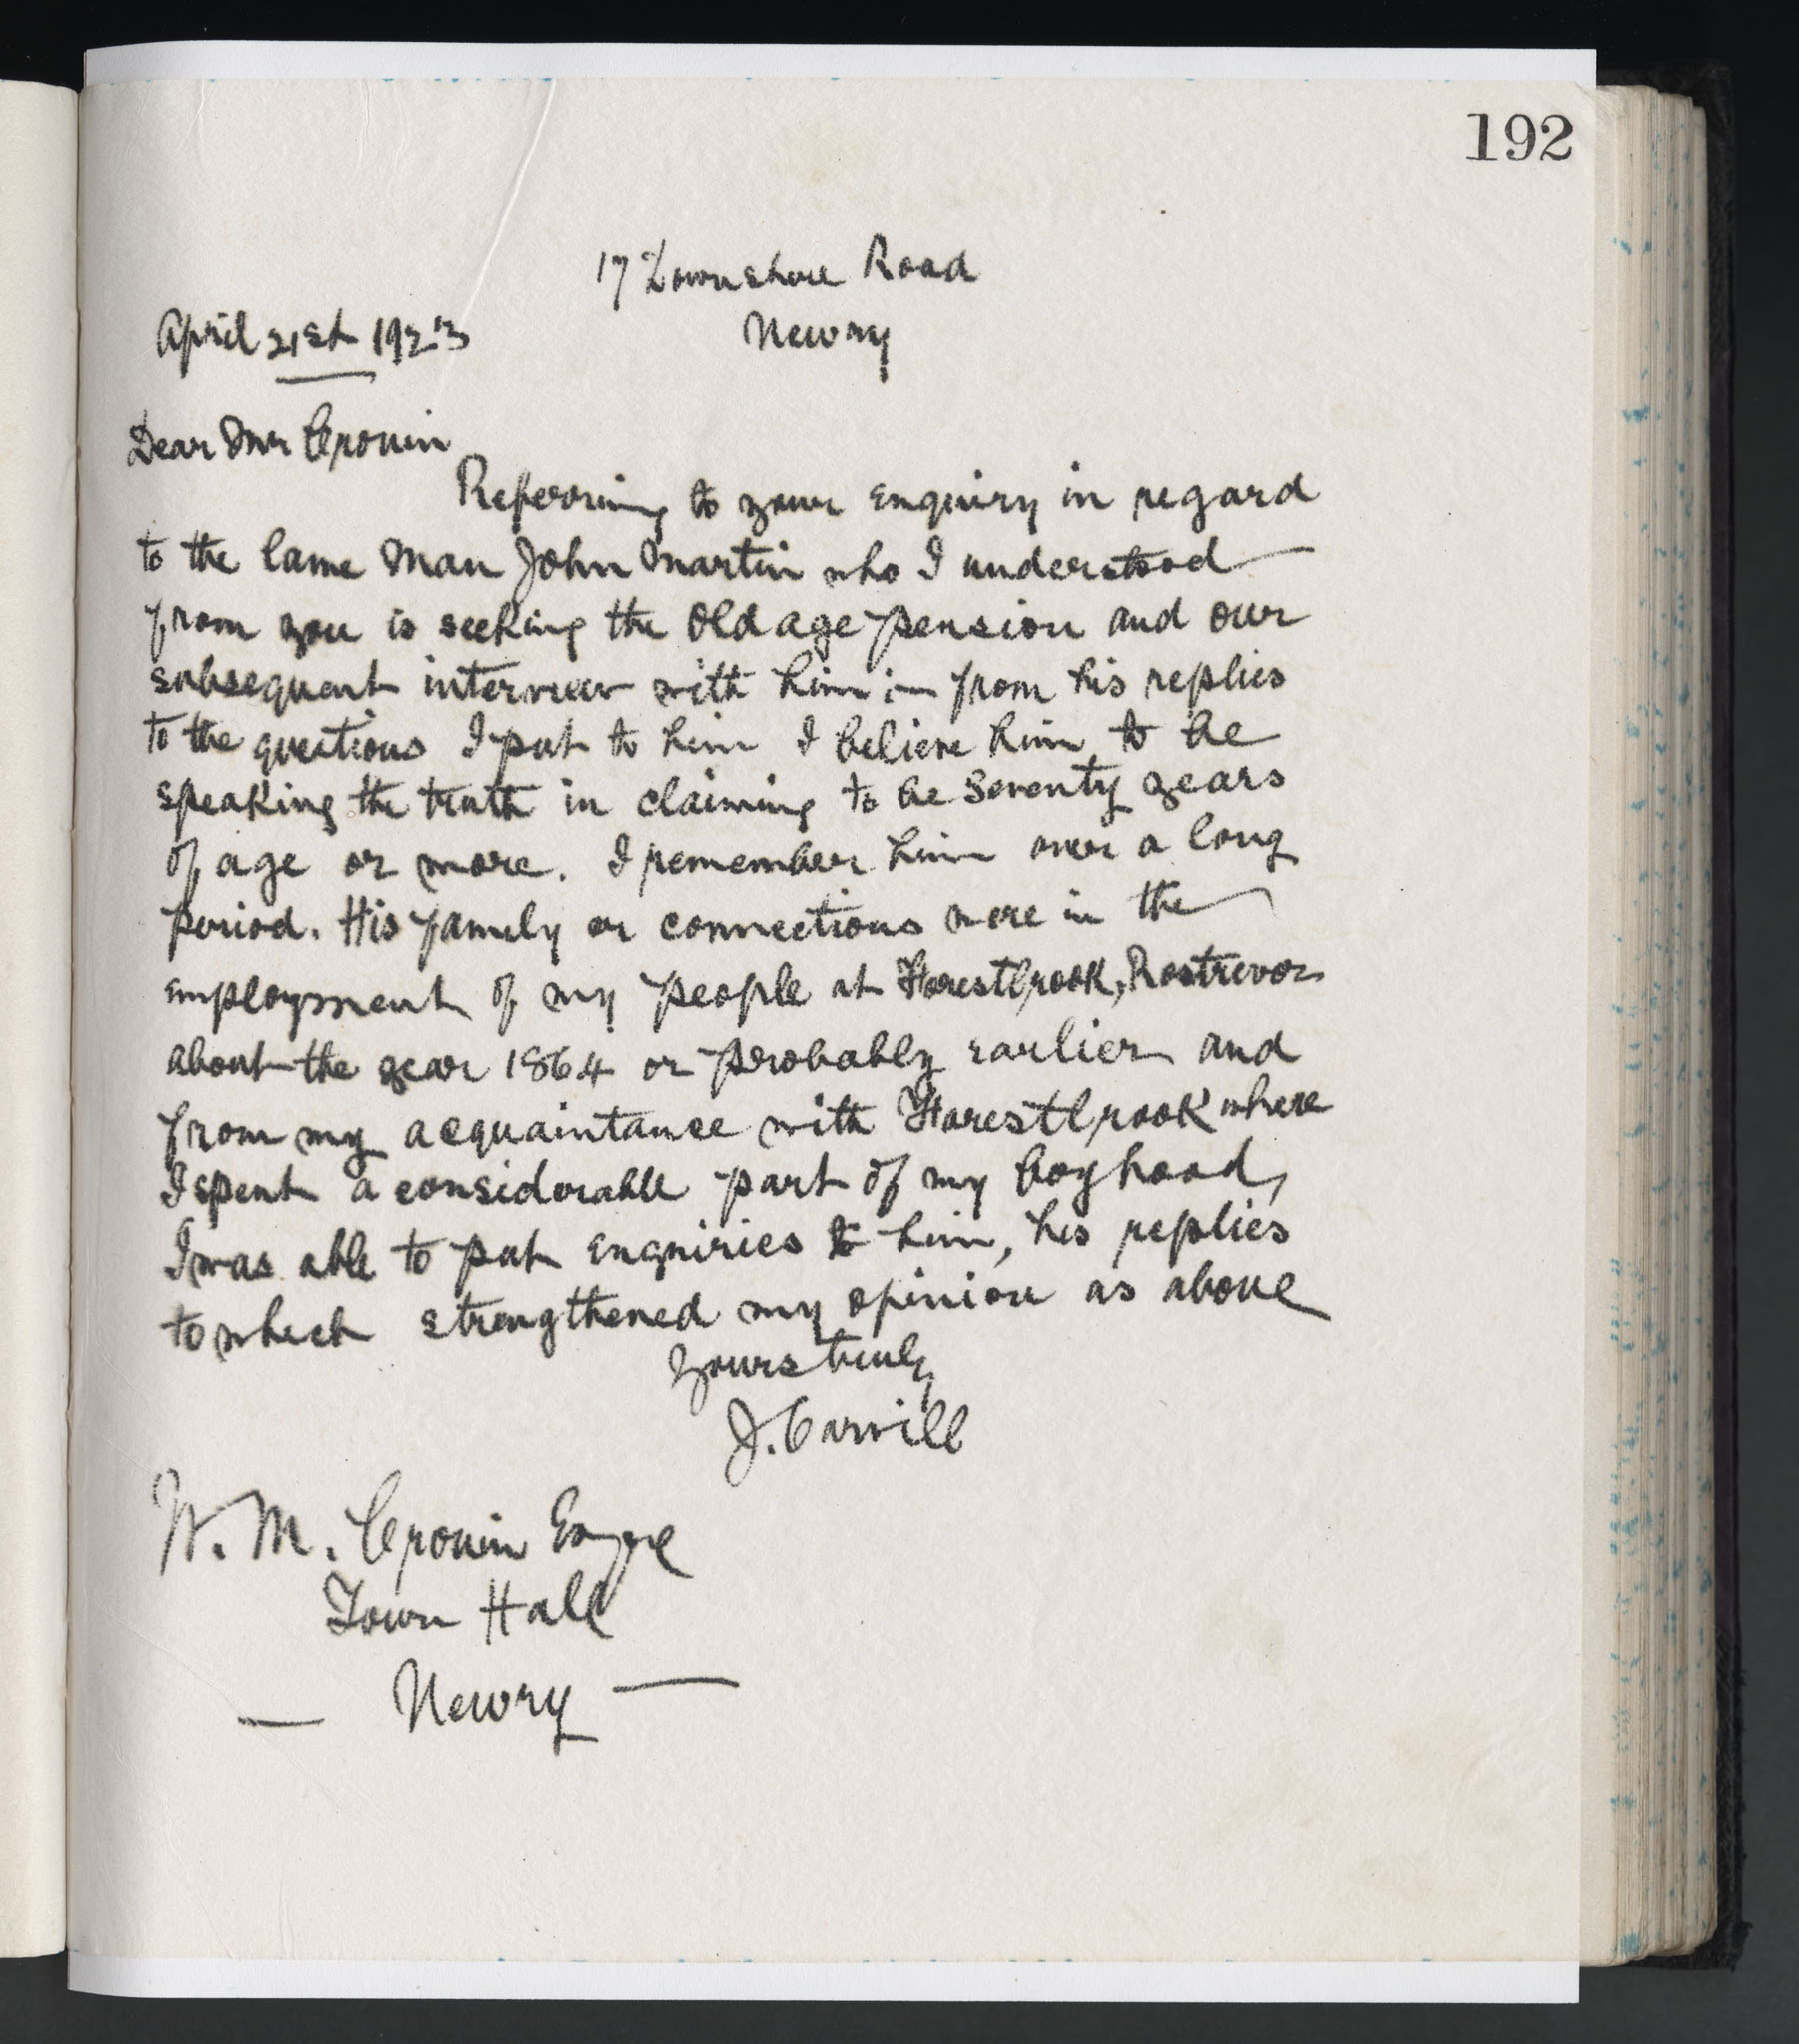 192
17 Downshire Road
April 21st 1923
Newry
Dear Mr Cronin
Referring to your enquiry in regard
to the lame man John Martin who I understood
from you is seeking the Old age pension and our
subsequent interview with him :— from his replies
to the questions I put to him I believe him to be
speaking the truth in claiming to be Seventy years
of age or more. I remember him over a long
period. His family or connections were in the
employment of my people at Forestbrook, Rostrevor
about the year 1864 or probably earlier and
from my acquaintance with Forestbrook where
I spent a considerable part of my boyhood,
I was able to put enquiries to him, his replies
to which strengthened my opinion as above
Yours truly
J. Carvill
W. M. Cronin Esqre
Town Hall
— Newry —